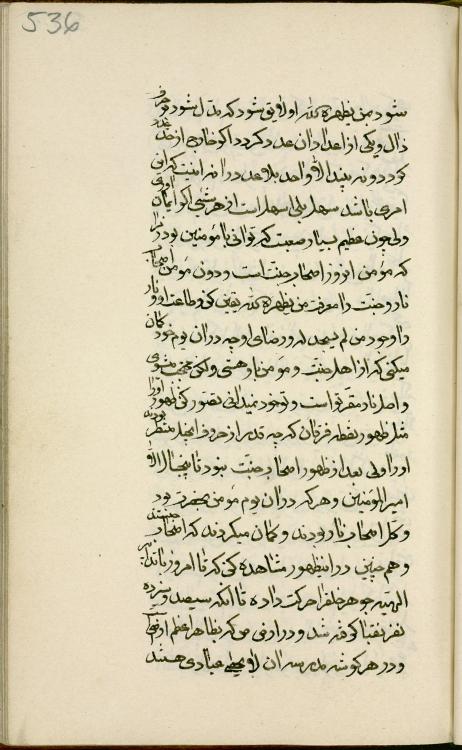 536
شود بمن یظهره الله او لایق شود که مدل شود بر حرف
ذال و یکی از اعداد ان عدد کردد اکر خارج از حد عدد
کردد و نه بیند الا واحد بلا عدد را نه اینست که این
امری باشد سهل بلی اسهل است از هر شیئی اکر ایمان اوری
ولی چون عظیم بسیار صعبست که توانی با مومنین بود زیرا
که مومن انروز اصحاب جنت است و دون مومن اصحاب
نار و جنت را معرفت من یظهره الله یقین کن و طاعت او و نار
را وجود من لم یسجد له و رضای او چه در ان یوم خود کمان
میکنی که از اهل جنت و مومن باو هستی ولکن محتجب میشوی
و اصل نار مقر تو است و تو خود نمیدانی تصور کن ظهور اورا
مثل ظهور نقطه فرقان که چه قدر از حروف انجیل منتظر بودند
اورا ولی بعد از ظهور اصحاب جنت نبود تا پنجسال الا
امیر المومنین و هرکه در ان یوم مومن بحضرت بود
و کل اصحاب نار بودند و کمان میکردند که اصحاب جنتند
و هم چنین در اینظهور مشاهده کن که تا امروز با تدابیر
الهیه جوهر خلقرا حرکت داده تا انکه سیصد و سیزده
نفر نقبا کرفته شد و در ارض که بظاهر اعظم اراضی
و در هر کوشه مدرسه ان لا یحصی عبادی هستند